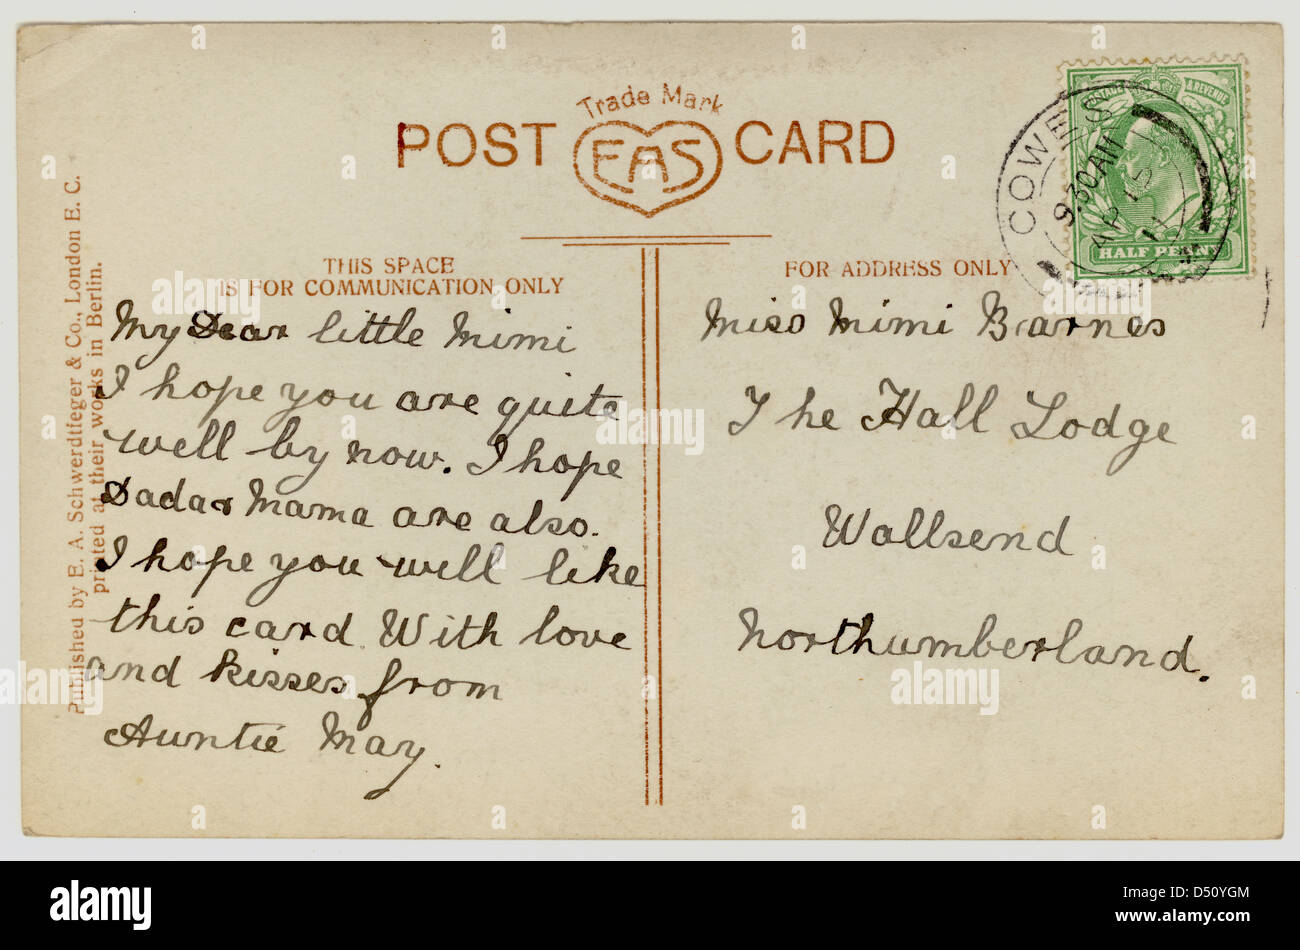 Trade Mark
POST EAS CARD
THIS SPACE
IS FOR COMMUNICATION ONLY
FOR ADDRESS ONLY
COWES
9.30 AM
AP 15
11
POSTAGE & REVENUE
HALF PENNY
Published by E. A. Schwerdtfeger & Co., London E. C.
printed at their works in Berlin.
My Dear little Mimi
I hope you are quite
well by now. I hope
Dada & Mama are also.
I hope you will like
this card. With love
and kisses from
Auntie May.
Miss Mimi Barnes
The Hall Lodge
Wallsend
Northumberland.
alamy
Image ID: D50YGM
www.alamy.com